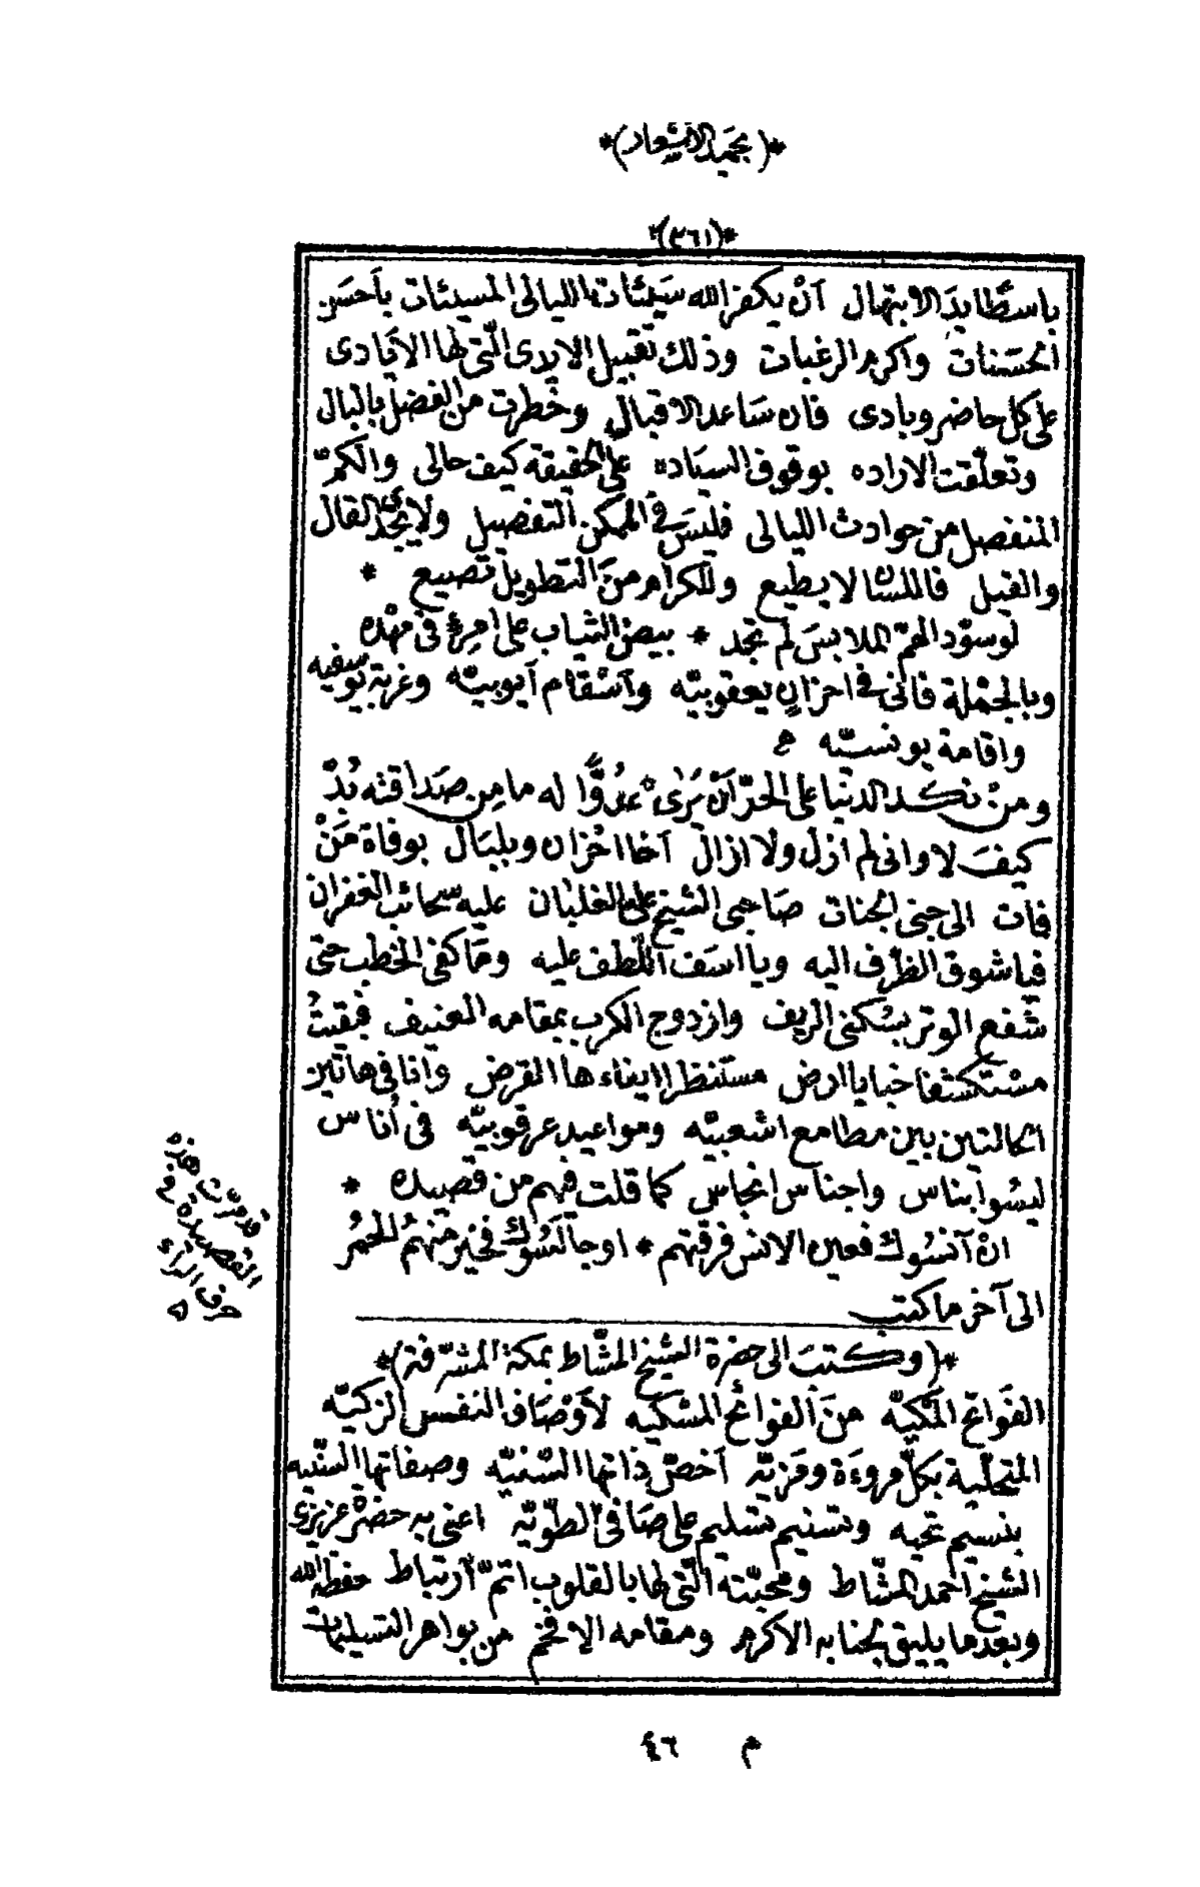 *(بحميد الأشعار)*
*(٣٦١)*
باسطًا يدَ الابتهال أنْ يكفر الله سيئات الليالى المسيئات بأحسَن
الحسَنات واكرم الرغبات وذلك تقبيل الايدى الّتى لها الايَادى
على كل حاضر وبادى فان سَاعد الاقبال وخطرت من الفضل بالبال
وتعلّقت الاراده بوقوف السيَاده على الحقيقة كيف حالى والكمّ
المنفصل من حوادث الليالى فليسَ فى الممكن التفصيل ولا يُجْدُ القال
والقيل فاللسان لا يطيع وللكرام منَ التطويل تضييع *
لو سوّد الهمّ الملابسَ لم تجد * بيض الثياب على امرئٍ فى مهْده
وبالجمْلة فانى فى احزانٍ يعقوبيّه وأسْقام أيوبيّه وغربة يوسفيه
واقامة يونسيّه
ومنْ نكد الدنيا على الحرّ أن يَرَى * عدُوًّا له ما مِن صَداقته بُدّ
كيفَ لا وانى لم أزل ولا ازال أخا احْزان وبلبَال بوفاة مَنْ
فات الى جنى الجنات صَاحبى الشيخ على الغلبَان عليه سحائب الغفران
فيا شوق الطرف اليه ويا اسَف اللّطف عليه ومَا كفى الخطب حتى
شفع الوتر بسُكنى الريف وازدوج الكرب بمقامه العنيف فبقيتُ
مسْتكشفا خبايا الارض مستنظرا ايفاءها القرض وانا فى هاتين
الحالتين بين مطامع اشعبيّه ومواعيد عرقوبيّه فى أُناس
ليسُوا بناس واجناس انجاس كما قلت فيهم من قصيده *
انْ آنسُوك فعين الانس فرقتهم * او جالسُوك فخير منهمُ الحُمُر
الى آخر ما كتب
*(وكتبَ الى حضرة الشيخ المشّاط بمكة المشرّفة)*
الفَواتح المَكيّه منَ الفوائح المسْكيه لأوْصَاف النفس الزكيّه
المتحلّية بكلّ مروءَة ومَزيّه أخصّ ذاتها السّنيّه وصفاتها السَنّيه
بنسيم تحيه وتسْنيم تسْليم على صَافى الطّويّه اعنى به حضرْة عزيزى
الشيخ احمد المشّاط ومحبّته الّتى لها بالقلوب اتمّ ارتباط حفظه الله
وبعد ما يليق بجنابه الاكرم ومقامه الافخم من بواهر التسليمات
قد مرّت هذه
القصيدة فى
حرف الراء
م ٤٦